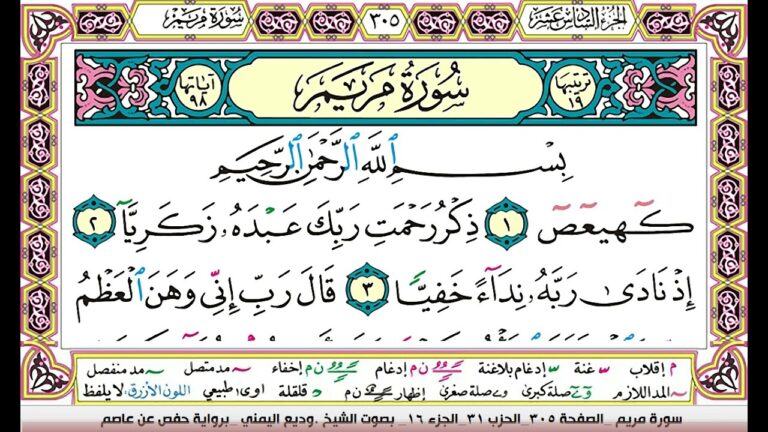 الجزء السادس عشر ٣٠٥ سورة مريم
ترتيبها ١٩ سُورَةُ مَرْيَمَ آياتها ٩٨
بِسْمِ ٱللَّهِ ٱلرَّحْمَٰنِ ٱلرَّحِيمِ
كٓهيعٓصٓ ١ ذِكْرُ رَحْمَتِ رَبِّكَ عَبْدَهُۥ زَكَرِيَّآ ٢
إِذْ نَادَىٰ رَبَّهُۥ نِدَآءً خَفِيًّا ٣ قَالَ رَبِّ إِنِّى وَهَنَ ٱلْعَظْمُ
م إقلاب غنة إدغام بلاغنة ن م إدغام ن م إخفاء مد متصل مد منفصل
المد اللازم وصلة كبرى وصلة صغرى إظهار ن م قلقلة اوى ا طبيعي اللون الأزرق: لا يلفظ
سورة مريم _الصفحة ٣٠٥_ الحزب ٣١_الجزء ١٦_ بصوت الشيخ .وديع اليمني _برواية حفص عن عاصم